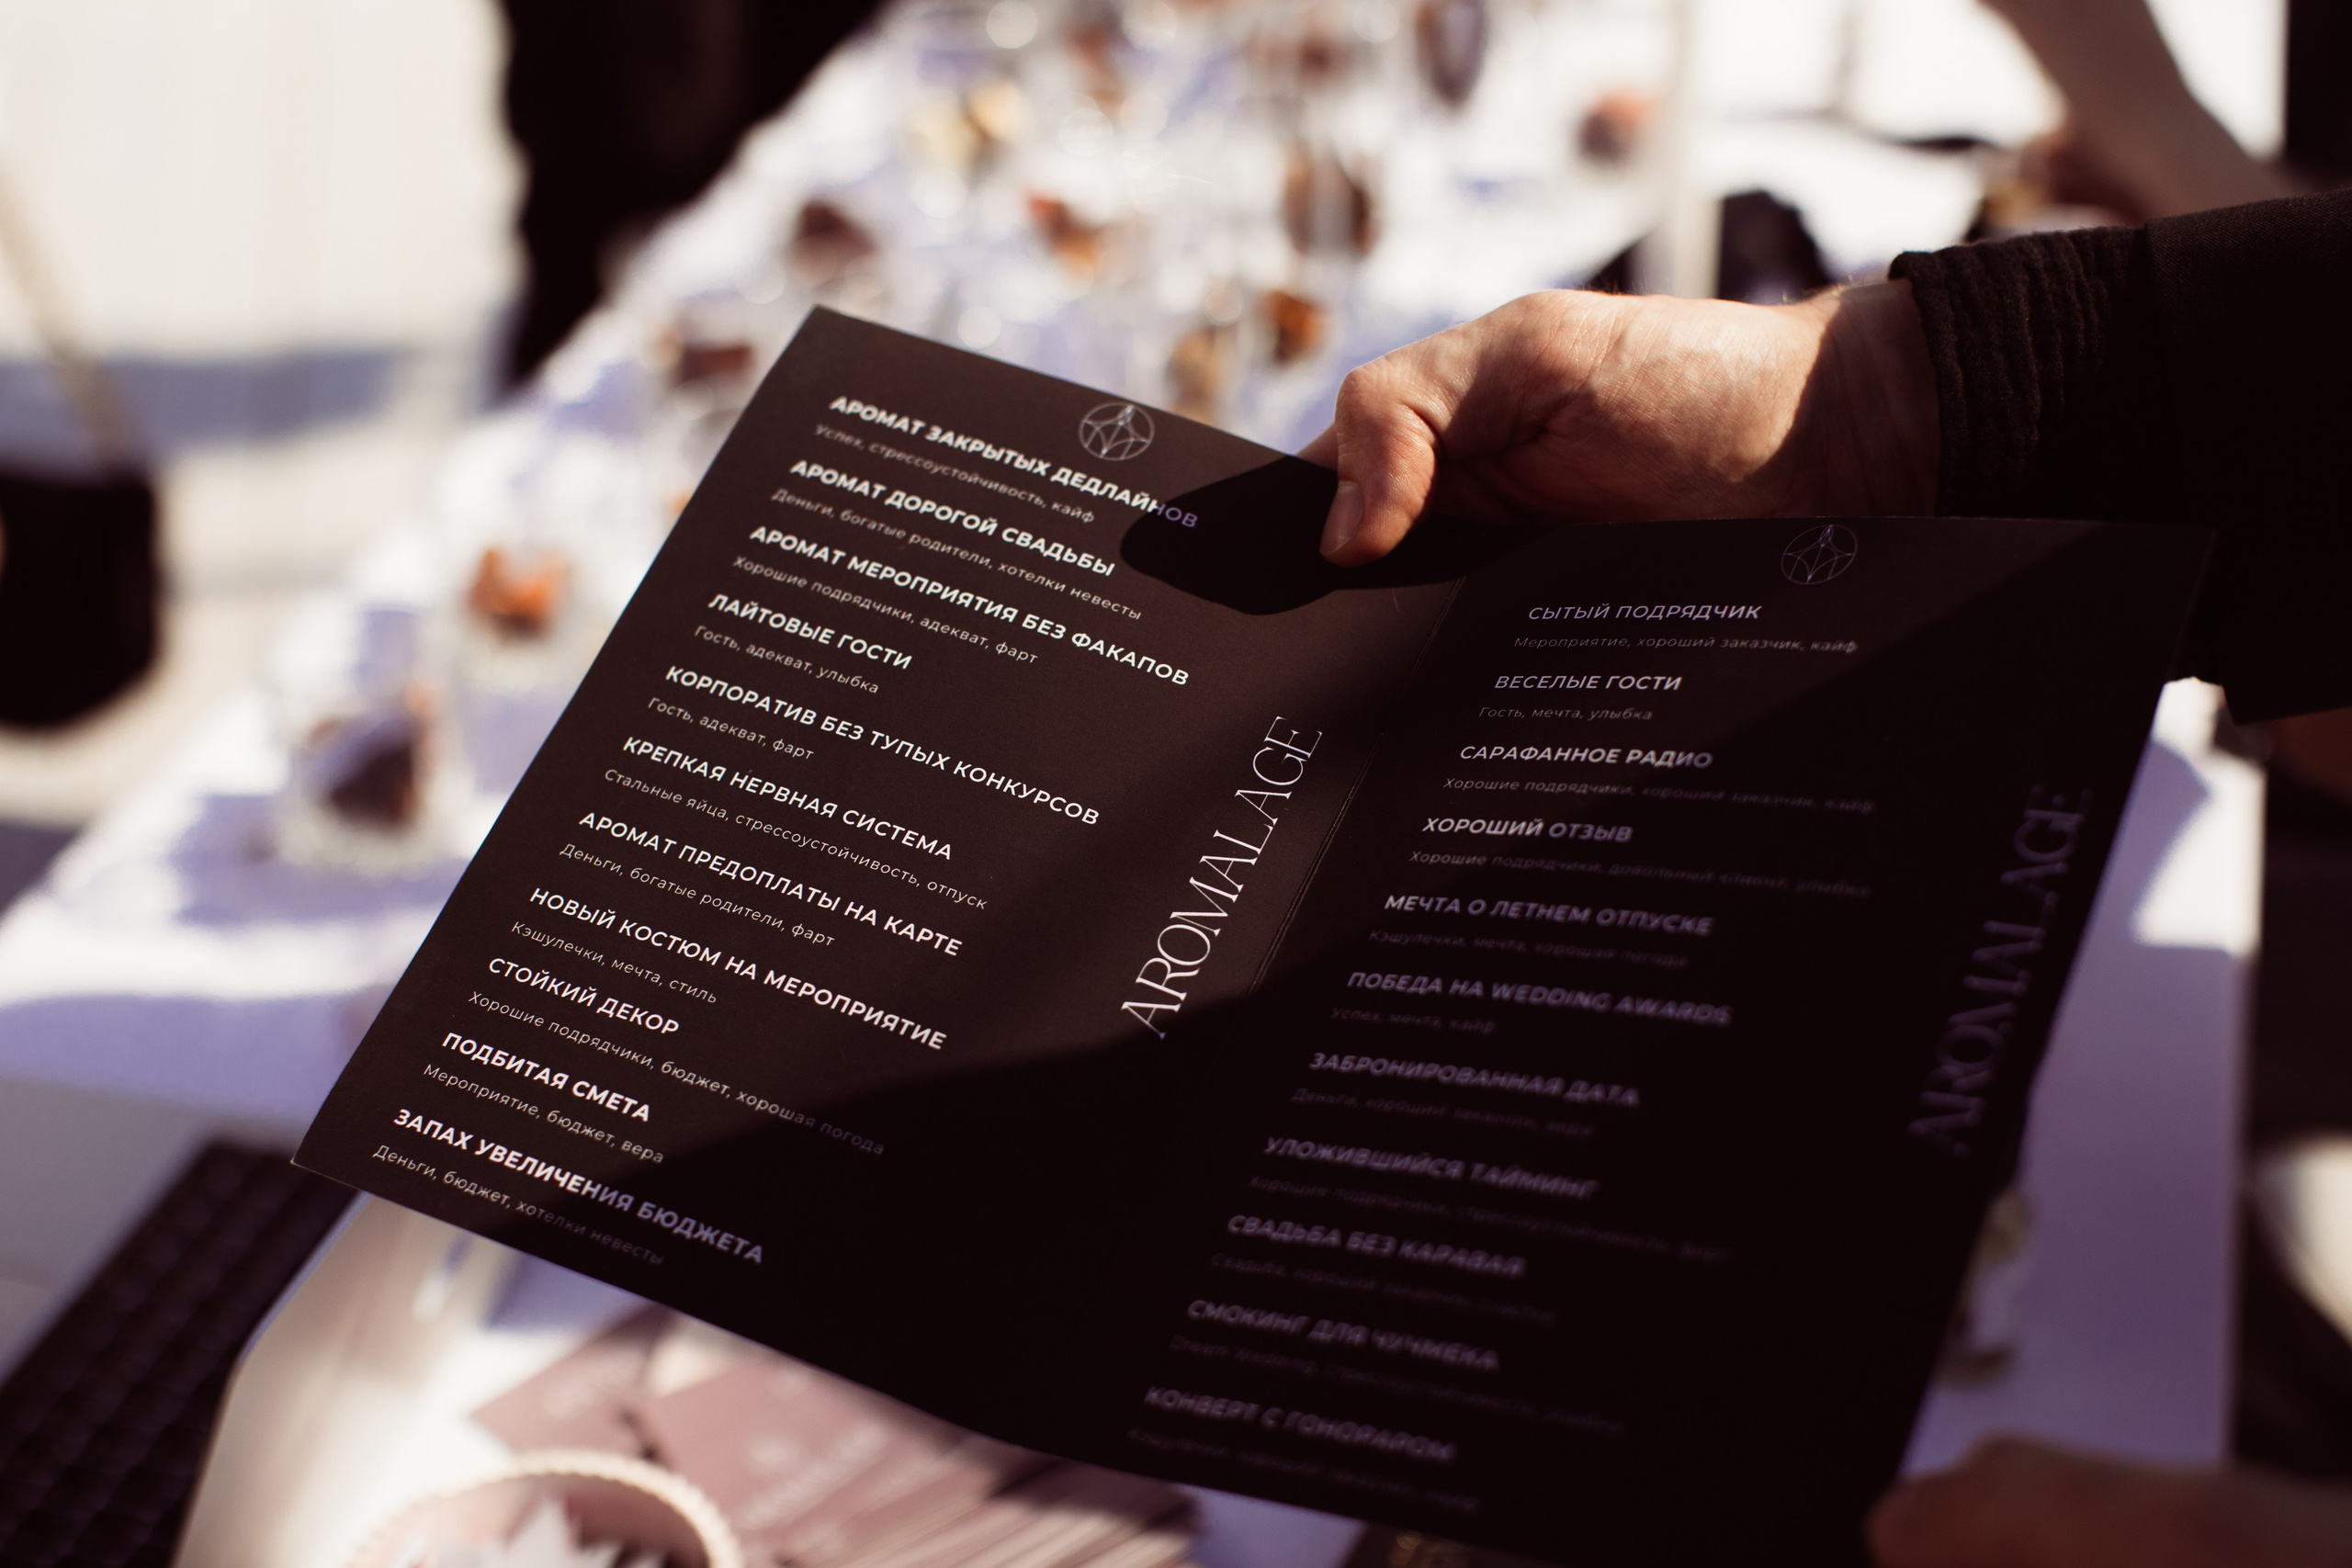 АРОМАТ ЗАКРЫТЫХ ДЕДЛАЙНОВ
Успех, стрессоустойчивость, кайф
АРОМАТ ДОРОГОЙ СВАДЬБЫ
Деньги, богатые родители, хотелки невесты
АРОМАТ МЕРОПРИЯТИЯ БЕЗ ФАКАПОВ
Хорошие подрядчики, адекват, фарт
ЛАЙТОВЫЕ ГОСТИ
Гость, адекват, улыбка
КОРПОРАТИВ БЕЗ ТУПЫХ КОНКУРСОВ
Гость, адекват, фарт
КРЕПКАЯ НЕРВНАЯ СИСТЕМА
Стальные яйца, стрессоустойчивость, отпуск
АРОМАТ ПРЕДОПЛАТЫ НА КАРТЕ
Деньги, богатые родители, фарт
НОВЫЙ КОСТЮМ НА МЕРОПРИЯТИЕ
Кэшулечки, мечта, стиль
СТОЙКИЙ ДЕКОР
Хорошие подрядчики, бюджет, хорошая погода
ПОДБИТАЯ СМЕТА
Мероприятие, бюджет, вера
ЗАПАХ УВЕЛИЧЕНИЯ БЮДЖЕТА
Деньги, бюджет, хотелки невесты
AROMALAGE
СЫТЫЙ ПОДРЯДЧИК
Мероприятие, хороший заказчик, кайф
ВЕСЕЛЫЕ ГОСТИ
Гость, мечта, улыбка
САРАФАННОЕ РАДИО
Хорошие подрядчики, хороший заказчик, кайф
ХОРОШИЙ ОТЗЫВ
Хорошие подрядчики, довольный клиент, улыбка
МЕЧТА О ЛЕТНЕМ ОТПУСКЕ
Кэшулечки, мечта, хорошая погода
ПОБЕДА НА WEDDING AWARDS
Успех, мечта, кайф
ЗАБРОНИРОВАННАЯ ДАТА
Деньги, хороший заказчик, вера
УЛОЖИВШИЙСЯ ТАЙМИНГ
Хорошие подрядчики, стрессоустойчивость,
СВАДЬБА БЕЗ КАРАВАЯ
Свадьба, хороший заказчик,
СМОКИНГ ДЛЯ ЧУЧМЕКА
КОНВЕРТ С ГОНОРАРОМ
Кэшулечки, хороший заказчик, кайф
AROMALAGE